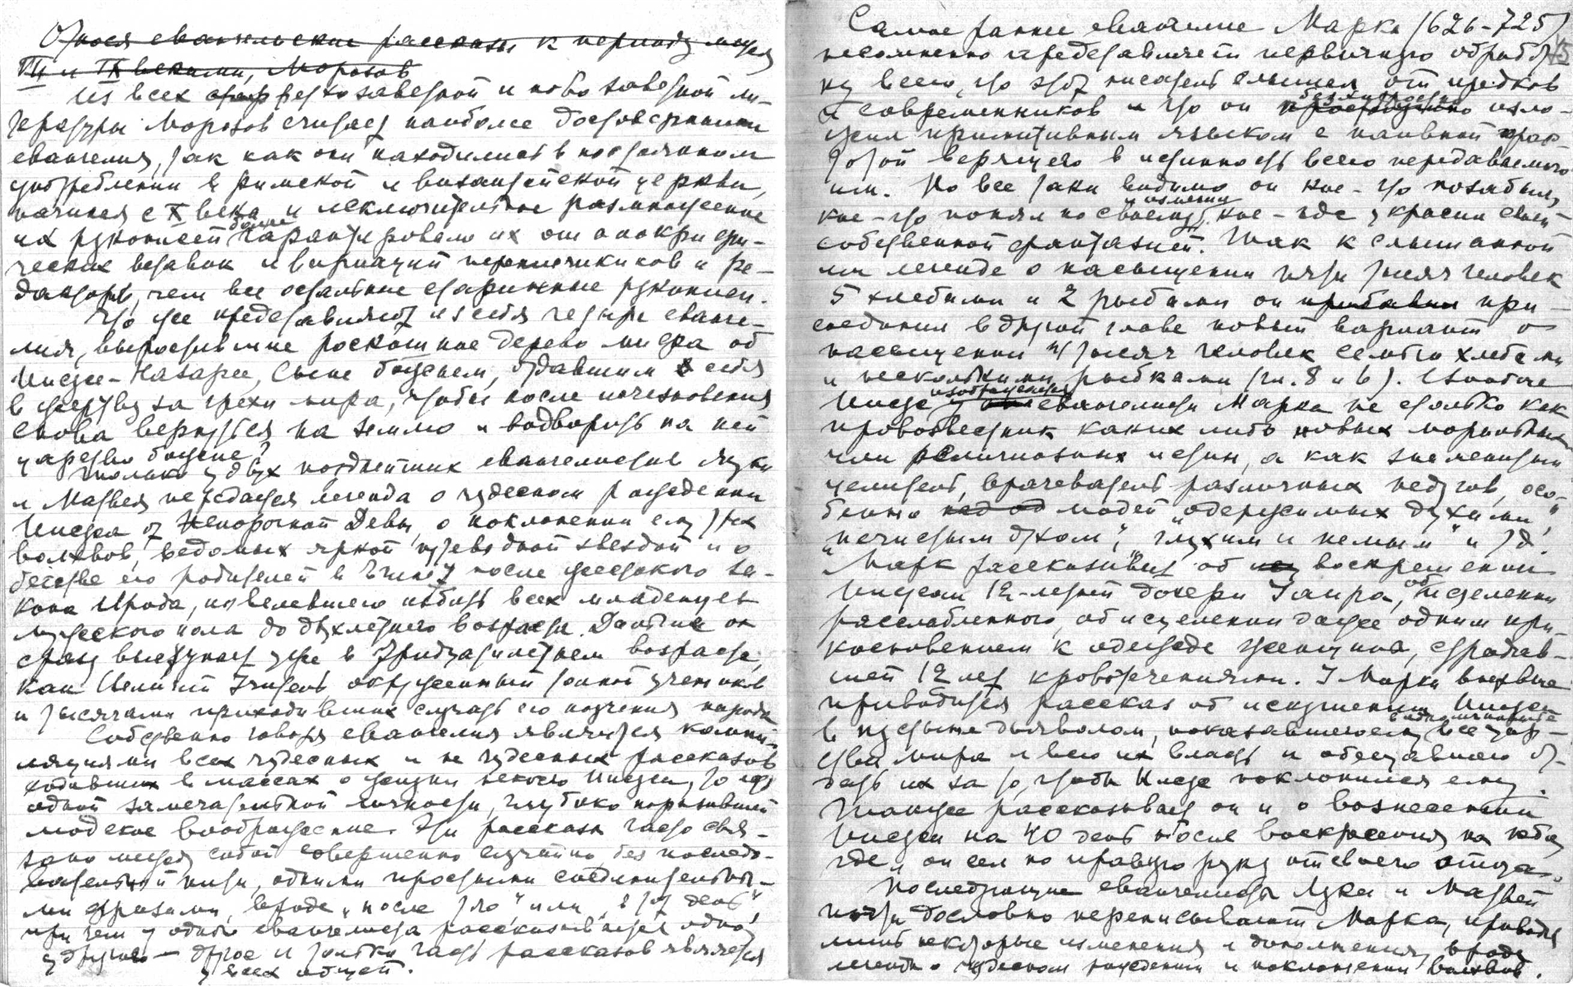 Относя евангельские рассказы к периоду между
VII и IX веками, Морозов
Из всех ветхозаветной и новозаветной ли-
тературы Морозов считает наиболее достоверными
евангелия, так как они находились в постоянном
употреблении в римской и византийской церкви,
начиная с X века и исключительное размножение
их рукописей более гарантировало их от апокрифи-
ческих вставок и вариаций переписчиков и ре-
дакторов, чем все остальные старинные рукописи.
Что же представляют из себя четыре еванге-
лия, вырастившие роскошное дерево мифа об
Иисусе-Назарее, Сыне божьем, отдавшим себя
в жертву за грехи мира, чтобы после исчезновения
снова вернуться на землю и водворить на ней
царство божие?
Только у двух позднейших евангелистов Луки
и Матвея передается легенда о чудесном рождении
Иисуса от Непорочной Девы, о поклонении ему трех
волхвов, ведомых яркой путеводной звездой и о
бегстве его родителей в Египет после жестокого за-
кона Ирода, повелевшего избить всех младенцев
мужского пола до двухлетнего возраста. Дальше он
сразу выступает уже в тридцатилетнем возрасте,
как Великий Учитель, окруженный толпой учеников
и тысячами приходивших слушать его поучения народа
Собственно говоря евангелия являются компи-
ляциями всех чудесных и не чудесных рассказов
ходивших в массах о жизни некоего Иисуса, то есть
одной замечательной личности, глубоко поразившей
людское воображение. Эти рассказы часто свя-
заны между собой совершенно случайно без последо-
вательной нити, одними простыми соединительны-
ми фразами, вроде „после того" или „в тот день"
при чем у одного евангелиста рассказывается одно,
у другого — другое и только часть рассказов является
у всех общей.
Самое раннее евангелие Марка (626-725)
несомненно представляет первичную обработ-
ку всего, что этот писатель слышал от предков
и современников и что он изло-
жил примитивным языком с наивной прос-
тотой верящего в истинность всего передаваемого
им. Но все таки видимо он кое-что позабыл,
кое-что понял по своему, кое-где украсил своей
собственной фантазией. Так к слышанной
им легенде о насыщении пяти тысяч человек
5 хлебами и 2 рыбами он прибавил при-
соединил в другой главе новый вариант о
насыщении 4 тысяч человек семью хлебами
и несколькими рыбками (гл. 8 и 6). Вообще
Иисус у евангелиста Марка не столько как
провозвестник каких либо новых моральных
или религиозных истин, а как знаменитый
целитель, врачеватель различных недугов, осо-
бенно над од людей „одержимых духами",
„нечистым духом", „глухим и немым" и т.д.
Марк рассказывает об воскрешении
Иисусом 12-летней дочери Иаира, об исцелении
расслабленного, об исцелении даже одним при-
косновением к одежде женщины, страдав-
шей 12 лет кровотечениями. У Марка впервые
приводится рассказ об искушении Иисуса
в пустыне дьяволом, показавшего ему все цар-
ства мира и всю их власть и обещавшего от-
дать их за то, чтобы Иисус поклонился ему.
Также рассказывает он и о вознесении
Иисуса на 40 день после воскресения на небо,
где и он сел по правую руку от своего отца.
Последующие евангелисты Лука и Матвей
почти дословно переписывают Марка, приводя
лишь некоторые изменения и дополнения, вроде
легенды о чудесном рождении и поклонении волхвов.